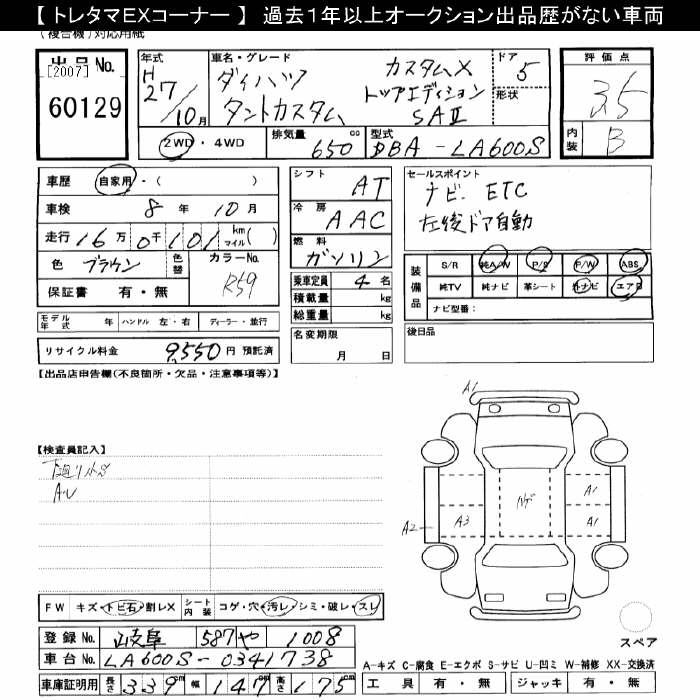 【 トレタマEXコーナー 】 過去1年以上オークション出品歴がない車両
(複合機)対応用紙
出品No.
[2007]
60129
年式
H
27/10月
車名・グレード
ダイハツ カスタムX
タントカスタム トップエディション
SAⅡ
ドア
5
形状
2WD・4WD
排気量
650 cc
型式
DBA-LA600S
評価点
3.5
内装
B
車歴 自家用・( )
車検 8年 10月
走行 16万 0千 101 km マイル( )
色 ブラウン 色替 カラーNo. R59
保証書 有・無
シフト AT
冷房 AAC
燃料 ガソリン
乗車定員 4名
積載量 kg
総重量 kg
セールスポイント
ナビ. ETC
左後ドア自動
装備品
S/R 純A/W P/S P/W ABS
純TV 純ナビ 革シート 外ナビ エアB
ナビ型番:
モデル年式 年 ハンドル 左・右 ディーラー・並行
名変期限
月 日
後日品
リサイクル料金 9,550円 預託済
【出品店申告欄(不良箇所・欠品・注意事項等)】
【検査員記入】
A1
A1
A2
A3
A1
FW キズ・トビ石・割レX シート内装 コゲ・穴・汚レ・シミ・破レ・スレ
登録No. 岐阜 587 や 1008
車台No. LA600S-0341738
車庫証明用 長さ 339cm 幅 147cm 高さ 175cm
スペア
A-キズ C-腐食 E-エクボ S-サビ U-凹ミ W-補修 XX-交換済
工具 有・無 ジャッキ 有・無